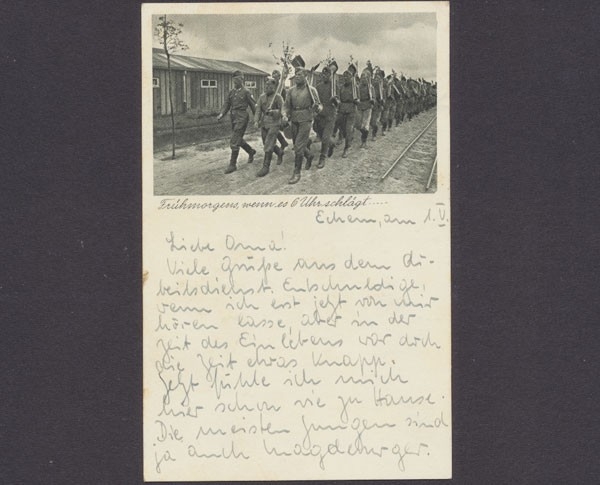 Frühmorgens, wenn es 6 Uhr schlägt.....
Echem, am 1. V.
Liebe Oma!
Viele Grüße aus dem Ar-
beitsdienst. Entschuldige,
wenn ich erst jetzt von mir
hören lasse, aber in der
Zeit des Einlebens war doch
die Zeit etwas knapp.
Jetzt fühle ich mich
hier schon wie zu Hause.
Die meisten Jungen sind
ja auch Magdeburger.